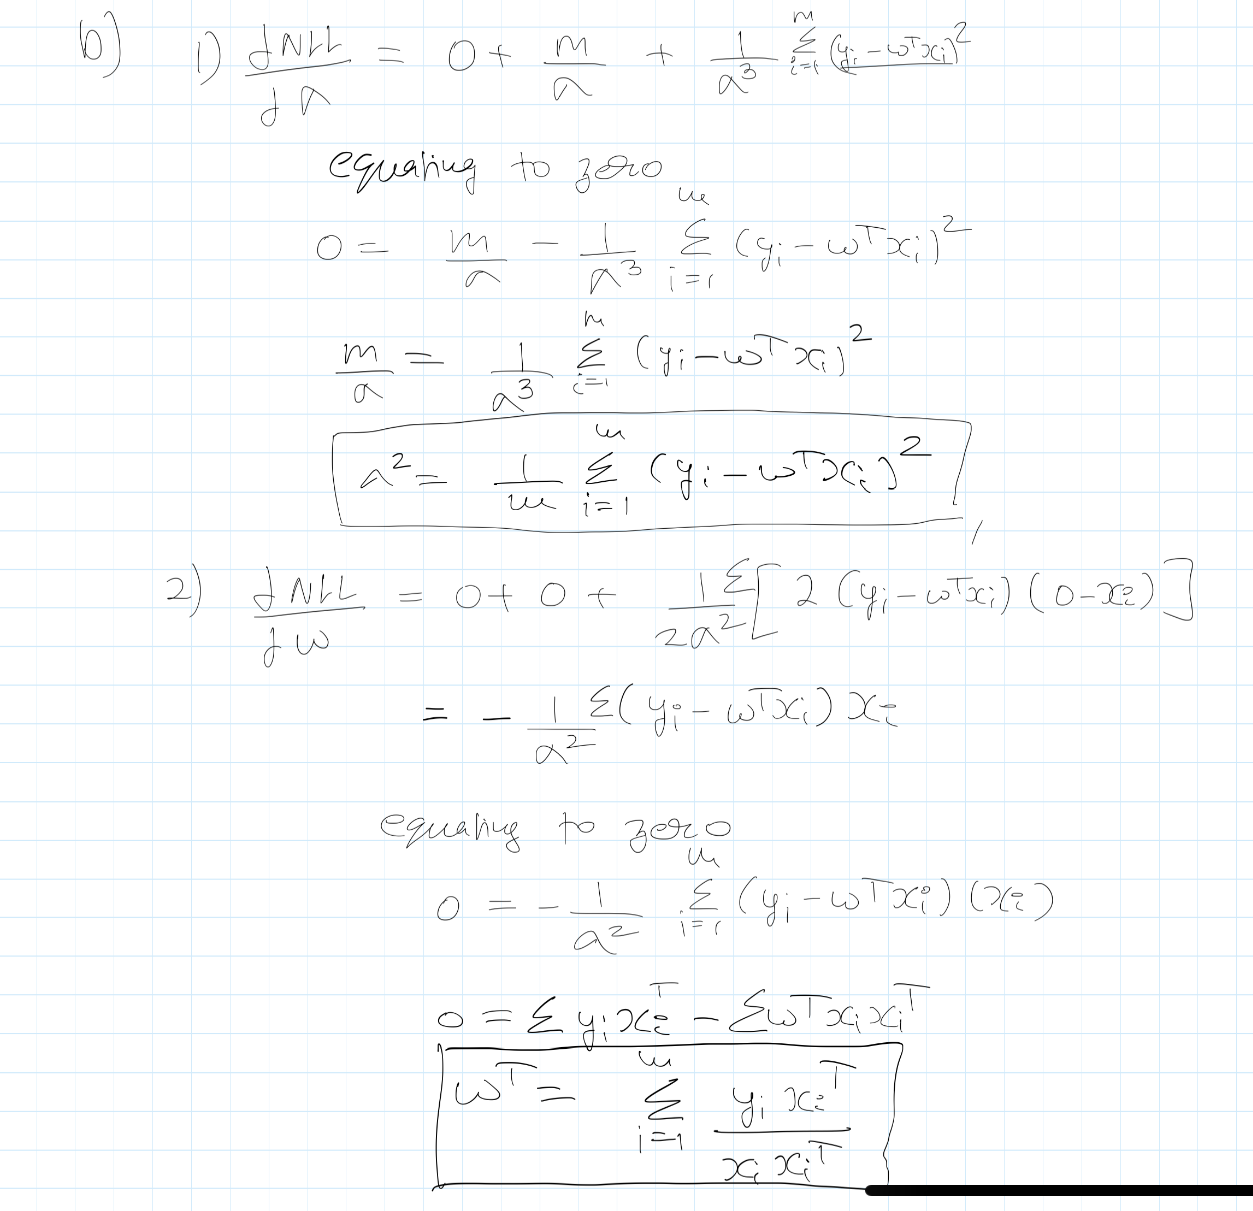 b) 1) dNLL/da = 0 + m/a + 1/a³ Σ_{i=1}^{m} (y_i - ω^T x_i)²
equating to zero
0 = m/a - 1/a³ Σ_{i=1}^{m} (y_i - ω^T x_i)²
m/a = 1/a³ Σ_{i=1}^{m} (y_i - ω^T x_i)²
a² = 1/m Σ_{i=1}^{m} (y_i - ω^T x_i)²
2) dNLL/dω = 0 + 0 + 1/2a² Σ [ 2 (y_i - ω^T x_i) (0 - x_i) ]
= - 1/a² Σ (y_i - ω^T x_i) x_i
equating to zero
0 = - 1/a² Σ_{i=1}^{m} (y_i - ω^T x_i) (x_i)
0 = Σ y_i x_i^T - Σ ω^T x_i x_i^T
ω^T = Σ_{i=1}^{m} y_i x_i^T / x_i x_i^T